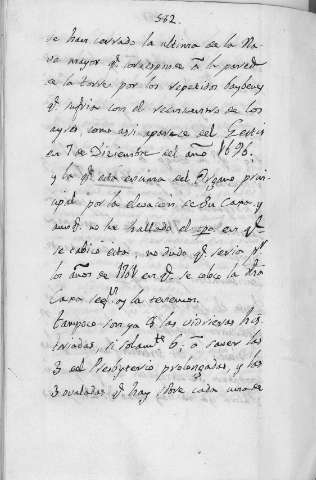 552.
se han cerrado la ultima de la Na-
va mayor q.e corresponde â la pared
de la torre por los repetidos baybenes
q.e sufria con el reencuentro de los
ayres como asi aparece del Gestis
en 7 de Diziembre del año 1696.
y la q.e està encima del Organo prin-
cipal por la elevacion de su Caxa y
aunq.e no he hallado el en q.e
se tabicò esta, no dudo q.e seria p.r
los años de 1701 en q.e se colocò la dha
Caxa seg.n oy la tenemos.
tampoco son ya tâ las vidrieras his-
toriadas, si solam.te 6; â saver las
3 del Presbyterio prolongadas, y las
3 ovaladas q.e hay sobre cada una de